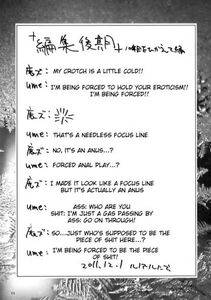 編集後記
魔ズ: MY CROTCH IS A LITTLE COLD!!
ume: I'M BEING FORCED TO HOLD YOUR EROTICISM!!
I'M BEING FORCED!!
魔ズ:
ume: THAT'S A NEEDLESS FOCUS LINE
魔ズ: NO, IT'S AN ANUS...?
ume: FORCED ANAL PLAY...?
魔ズ: I MADE IT LOOK LIKE A FOCUS LINE
BUT IT'S ACTUALLY AN ANUS
ume: ASS: WHO ARE YOU
SHIT: I'M JUST A GAS PASSING BY
ASS: GO ON THROUGH!
魔ズ: SO...JUST WHO'S SUPPOSED TO BE THE
PIECE OF SHIT HERE...?
ume: I'M BEING FORCED TO BE THE PIECE
OF SHIT!
2011.12.1